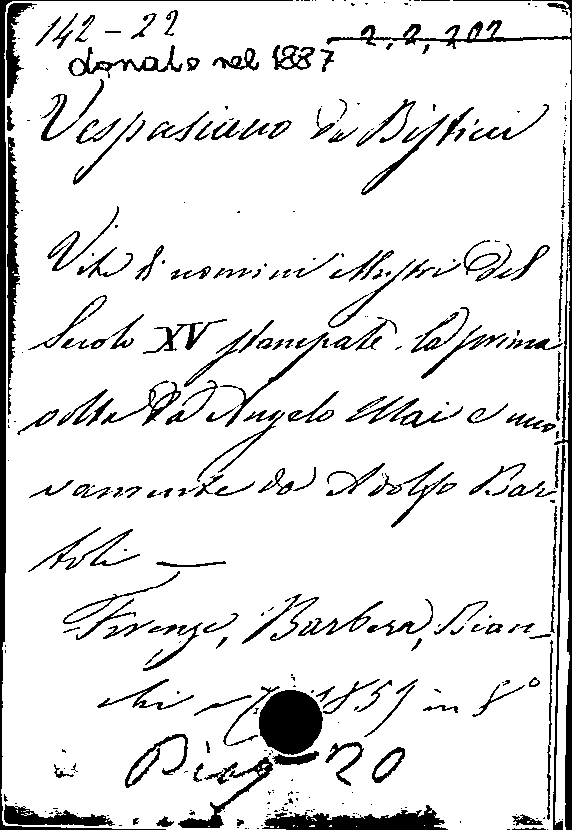 142-22 2,2,202
donato nel 1887
Vespasiano da Bisticci
Vite di uomini illustri del
Secolo XV stampate la prima
volta da Angelo Mai e nuo
vamente da Adolfo Bar
toli —
Firenze, Barbera, Bian-
chi e 1859 in 8°
Biog 20